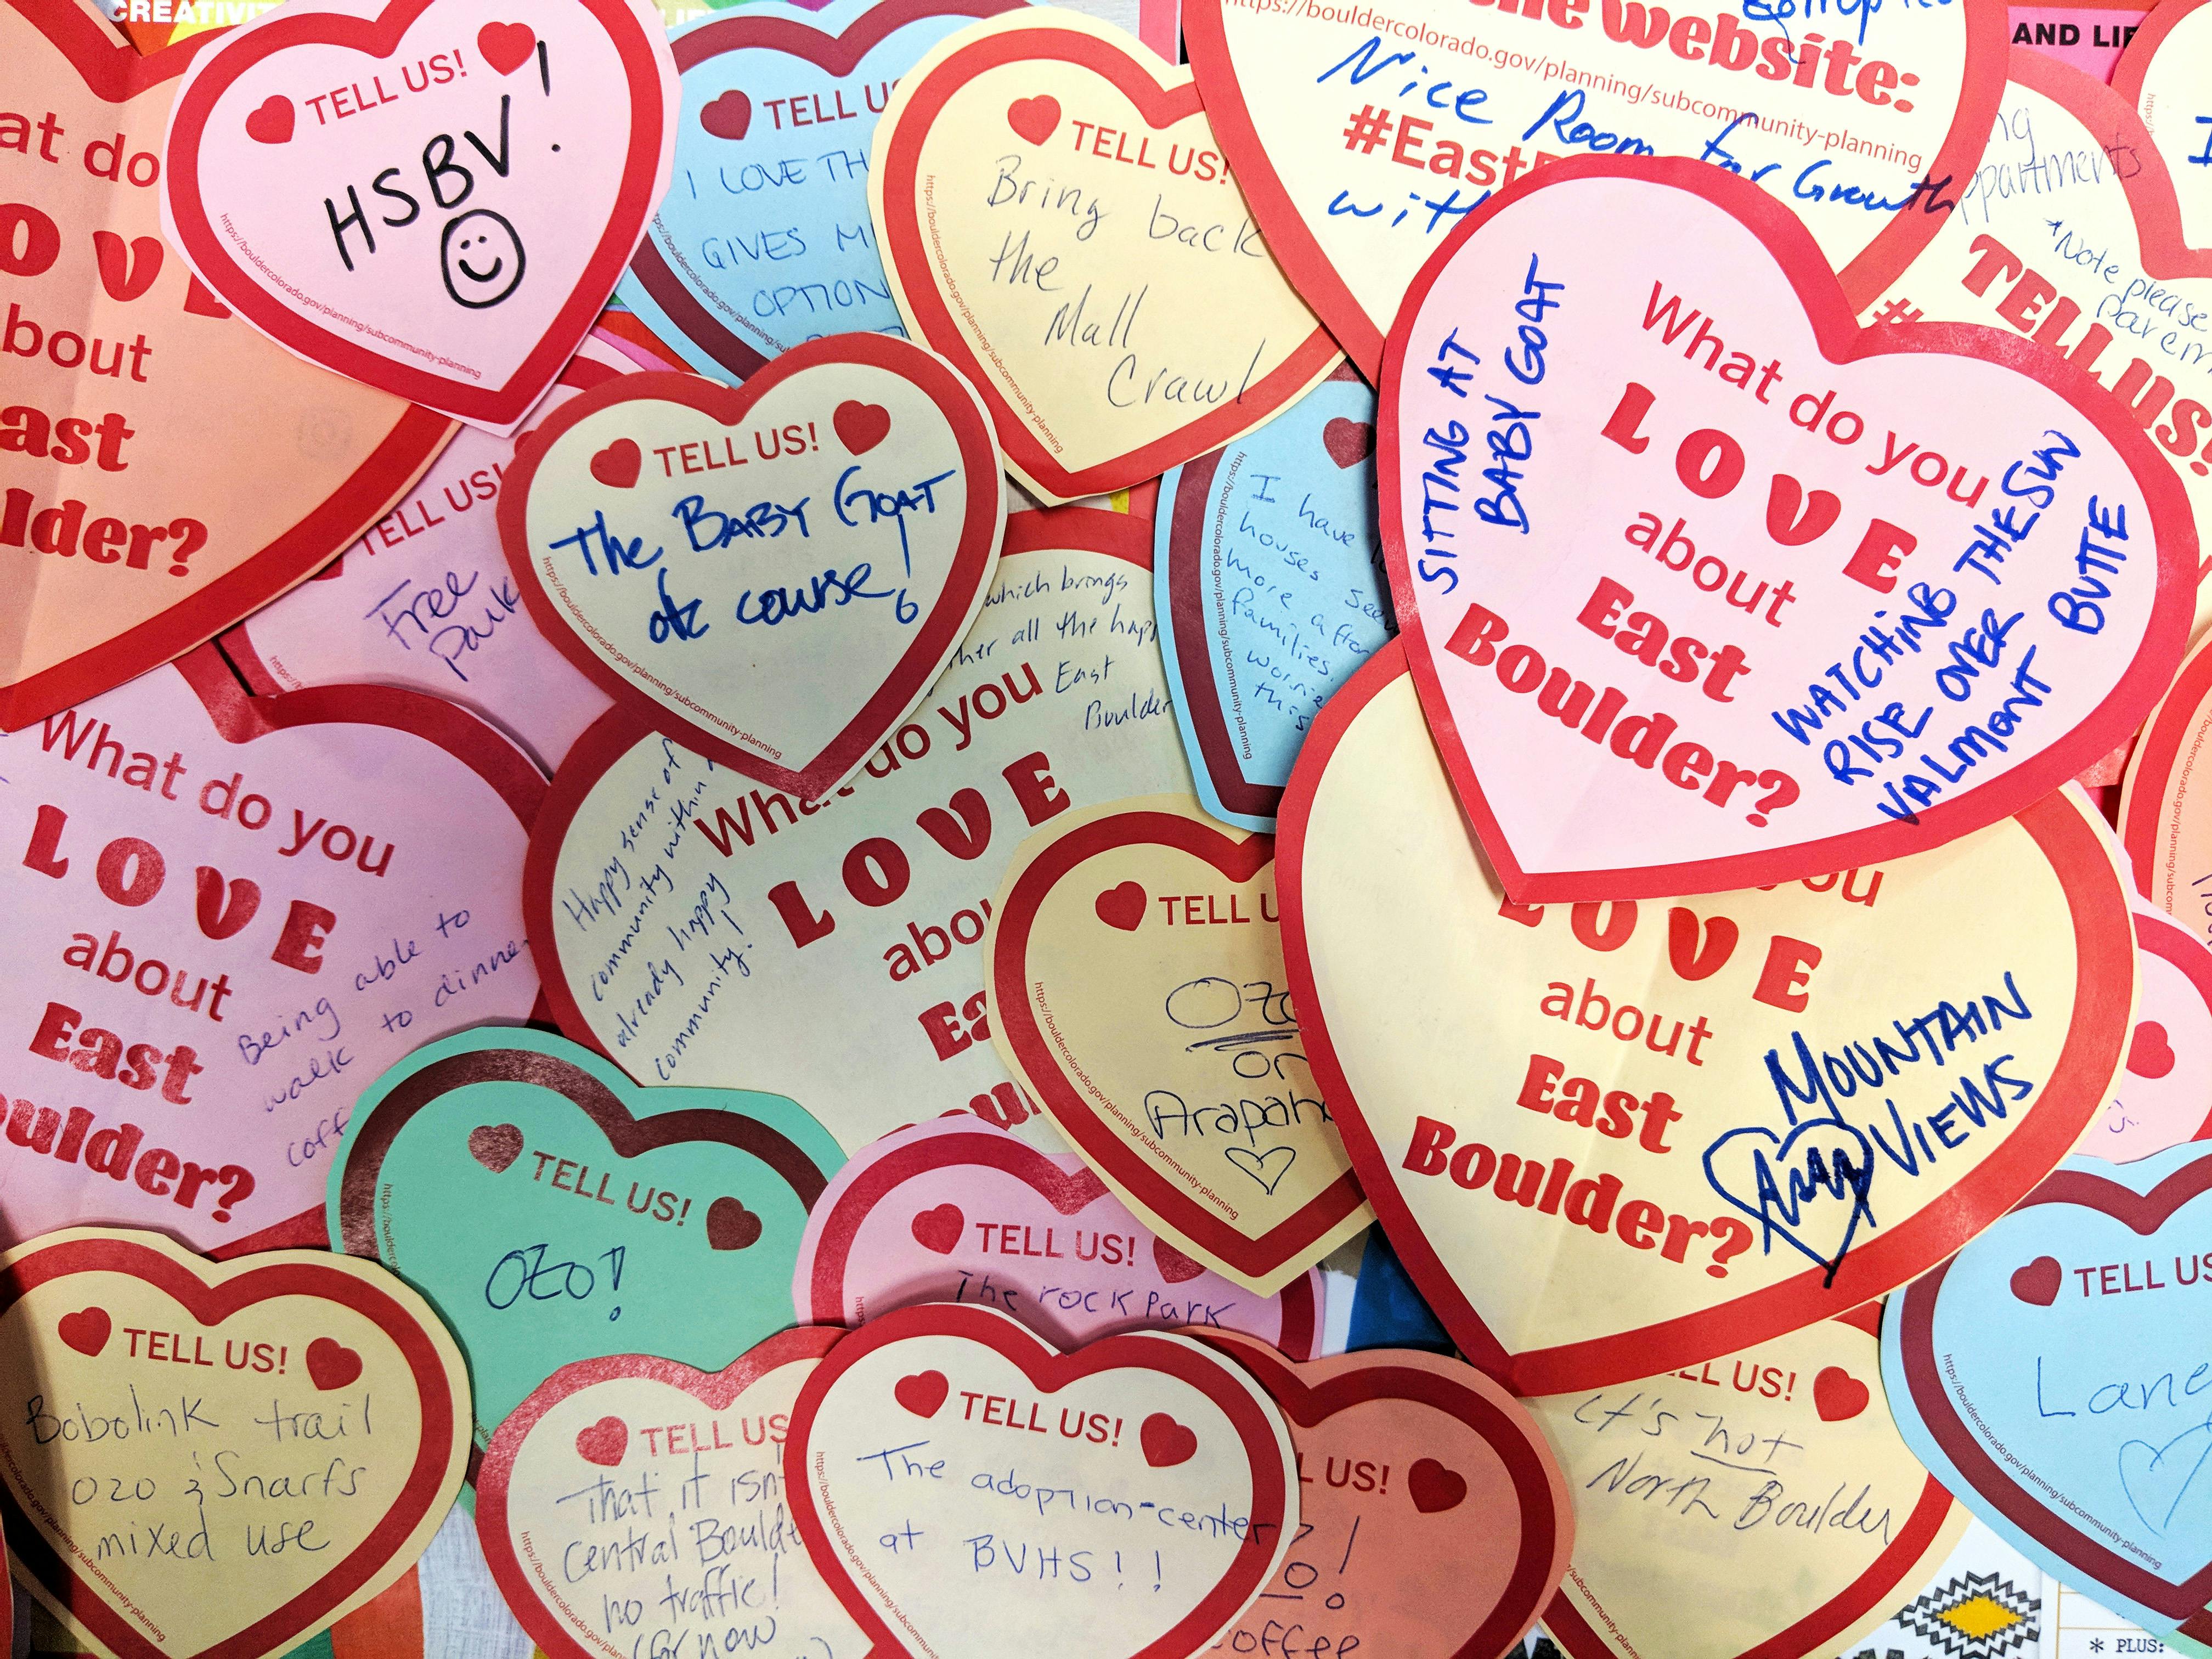 CREATIVIT
TELL US!
HSBV!
https://bouldercolorado.gov/planning/subcommunity-planning
TELL US
I LOVE TH
GIVES M
OPTION
TELL US!
Bring back
the
Mall
Crawl
https://bouldercolorado.gov/planning/subcommunity-planning
he website:
https://bouldercolorado.gov/planning/subcommunity-planning
Nice Room for Growth
#East
with
AND LIF
ng
ppartments
*Note please
TELL US!
#
at do
OVE
bout
ast
lder?
TELL US!
Free
Park
TELL US!
The BABY GOAT
of course!
https://bouldercolorado.gov/planning/subcommunity-planning
I have
houses see
more affor
families.
worrie
this
https://bouldercolorado.gov/planning/subcommunity-planning
SITTING AT
BABY GOAT
What do you
LOVE
about
East
Boulder?
WATCHING THE SUN
RISE OVER
VALMONT BUTTE
which brings
ther all the happ
East
Boulder
What do you
LOVE
abou
Ea
oul
Happy sense of
community within a
already happy
community!
What do you
LOVE
about
East
oulder?
Being able to
walk to dinne
coff
TELL U
Ozo
on
Arapah
https://bouldercolorado.gov/planning/subcommunity-planning
ou
LOVE
about
East
Boulder?
MOUNTAIN
VIEWS
TELL US!
OZO!
TELL US!
The rock Park
TELL US!
Bobolink trail
ozo & Snarfs
mixed use
https://bouldercolorado.gov/planning/subcommunity-planning
TELL US
That it isn
Central Boulde
no traffic!
(for now
TELL US!
The adoption-center
at BVHS!!
https://bouldercolorado.gov/planning/subcommunity-planning
L US!
o!
coffee
ELL US!
It's not
North Boulder
TELL US
Lane
https://bouldercolorado.gov/planning/subcommunity-planning
* PLUS: